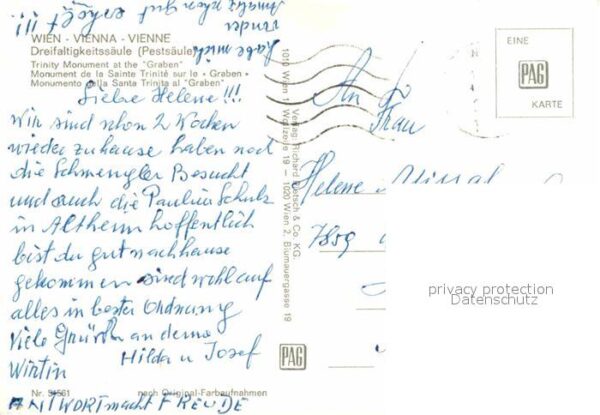 WIEN - VIENNA - VIENNE
Dreifaltigkeitssäule (Pestsäule)
Trinity Monument at the "Graben"
Monument de la Sainte Trinité sur le « Graben »
Monumento della Santa Trinita al "Graben"
Liebe Helene!!!
Wir sind schon 2 Wochen
wieder zuhause haben noch
die Schmengler Besucht
und auch die Paulin Schulz
in Altheim hoffentlich
bist du gut nachhause
gekommen sind wohlauf
alles in bester Ordnung
Viele Grüße an deine
Wirtin Hilda u Josef
Nr. 31561 nach Original-Farbaufnahmen
ANTWORT macht FREUDE
habe mich
wieder
gut erholt !!!
Verlag Richard & Co. KG.
1010 Wien 1, Wollzeile 19 — 1020 Wien 2, Blumauergasse 19
PAG
EINE
PAG
KARTE
An
Frau
Helene
privacy protection
Datenschutz